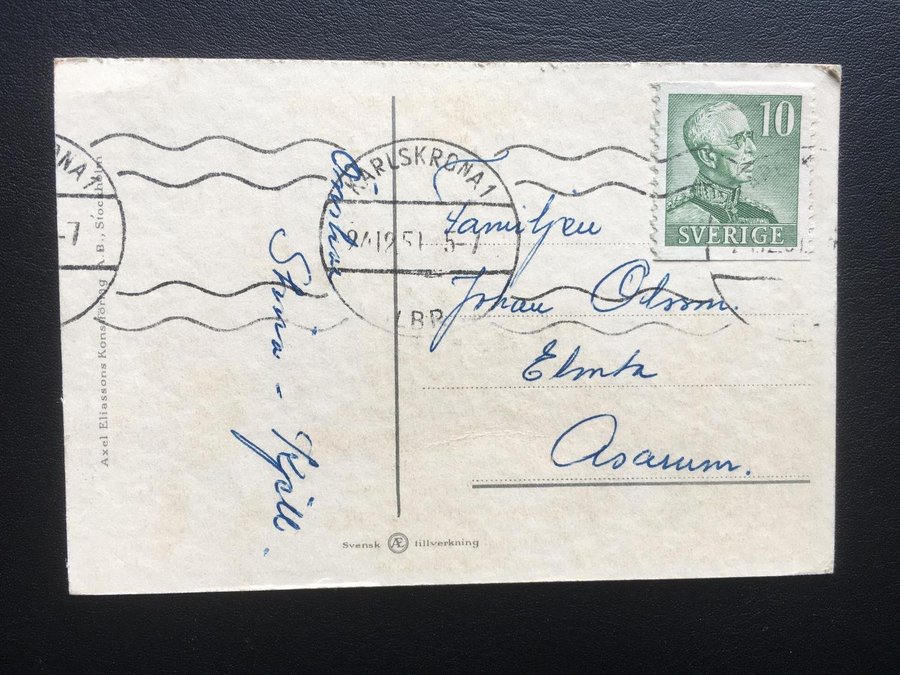 Axel Eliassons Konstförlag A.B., Stockholm
Stina - Kjell.
KARLSKRONA 1
24.12.51 5-7
LBR
10
SVERIGE
Familjen
Johan Olsson.
Elmta
Asarum.
Svensk Æ tillverkning
KRONA 1
-7